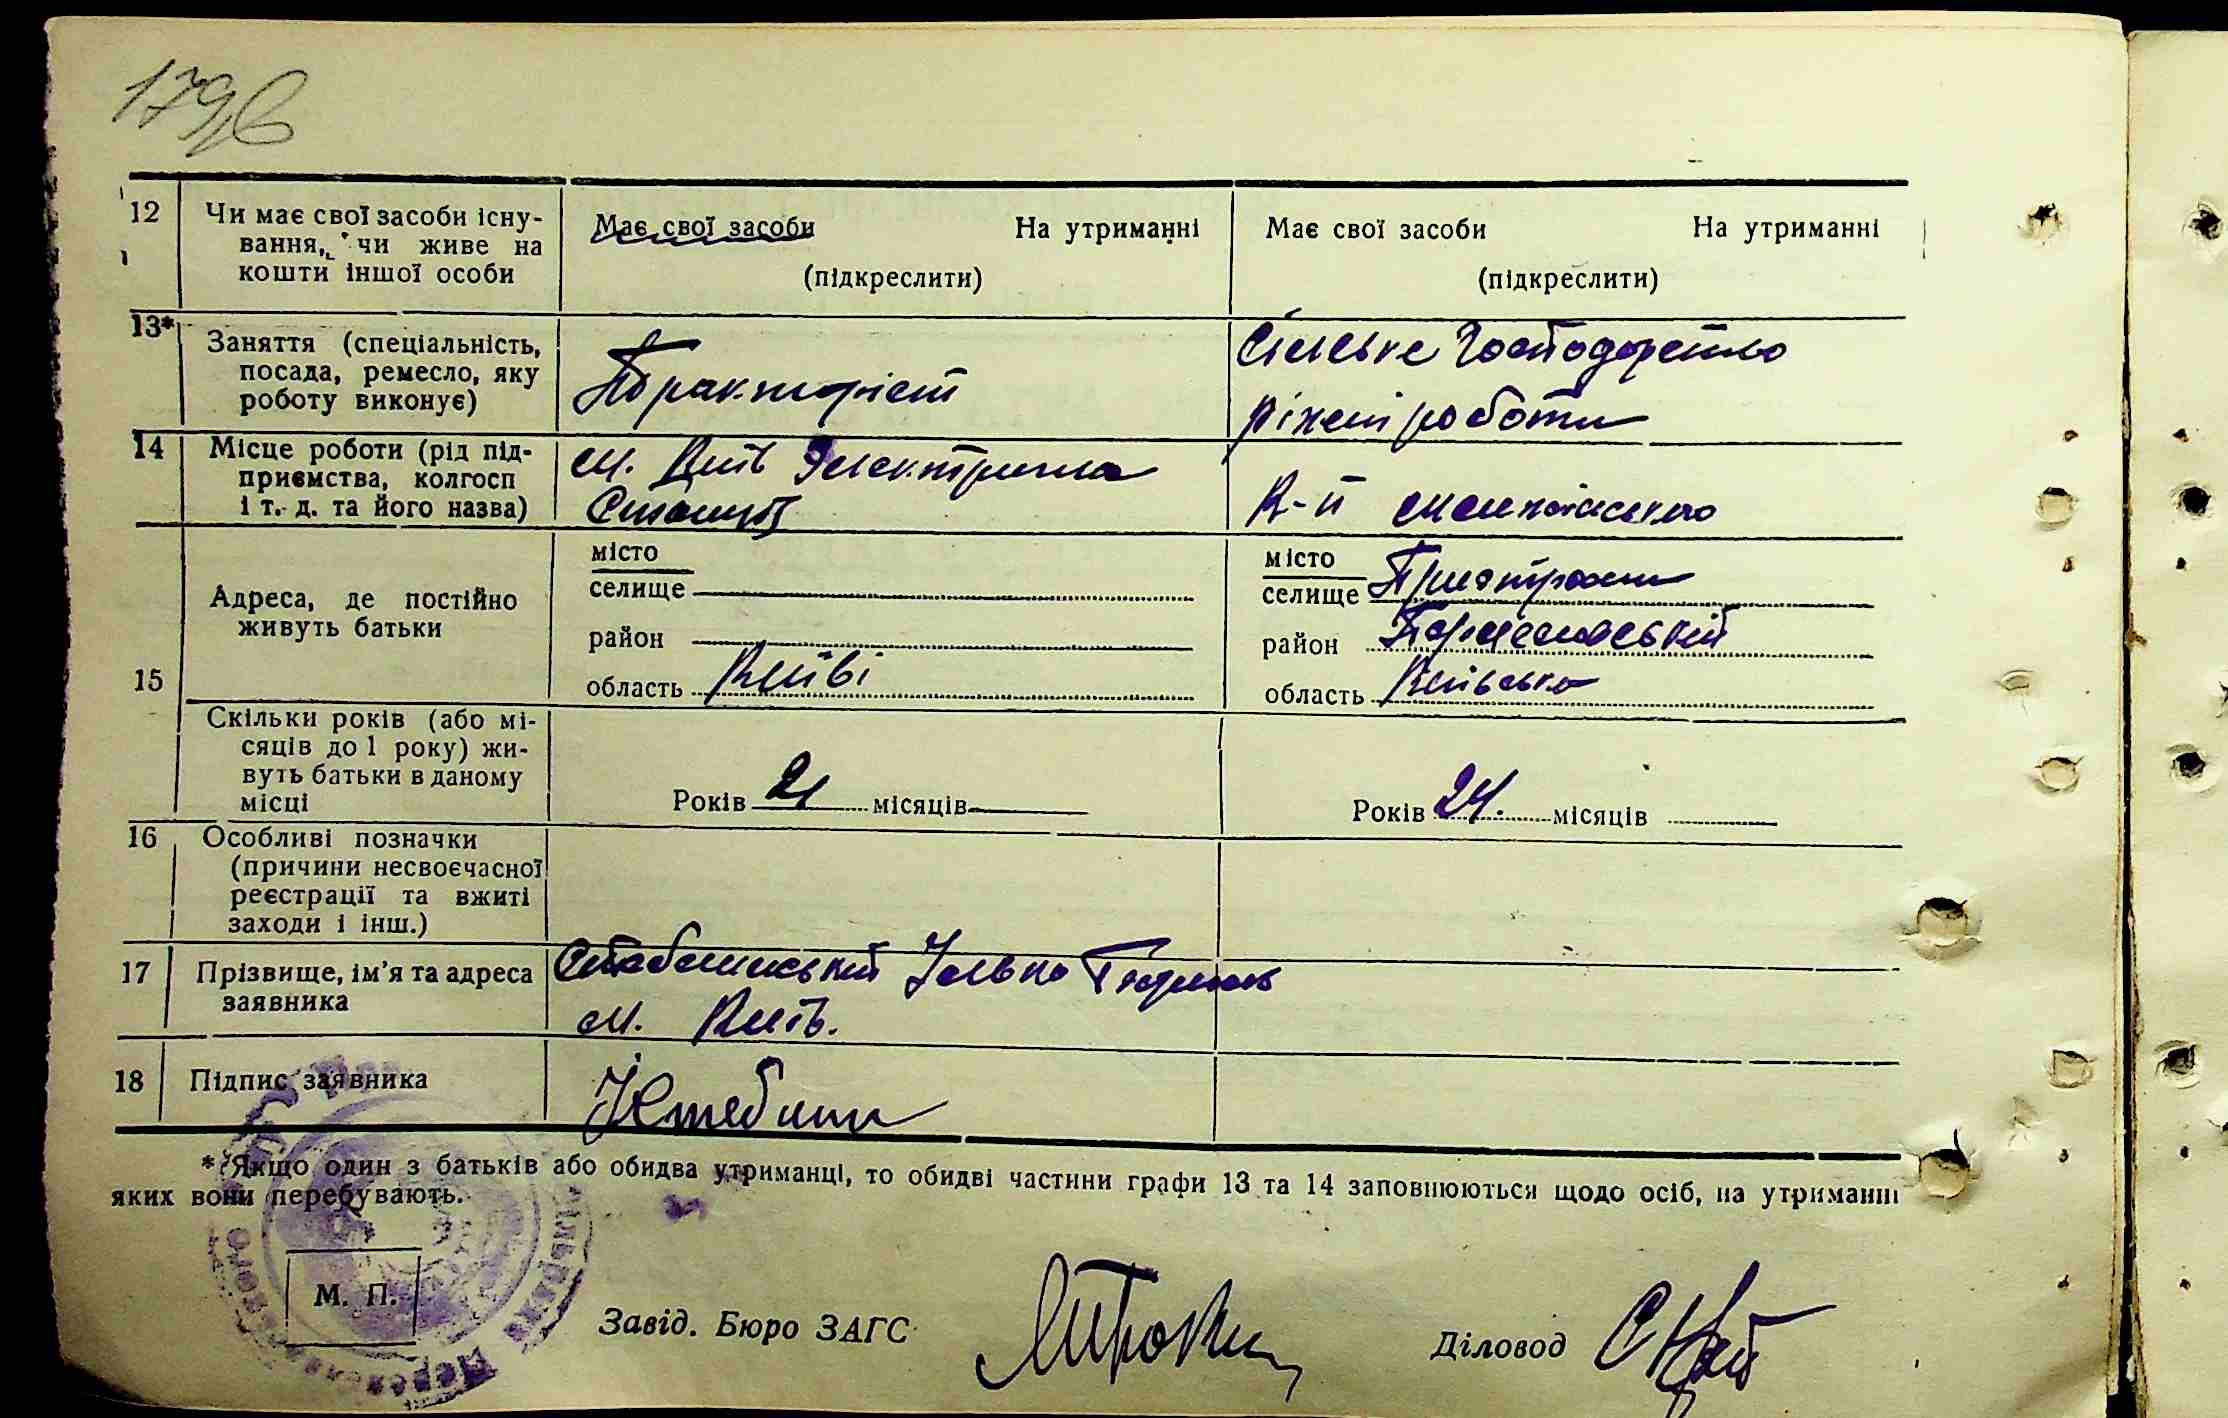 179б
12
Чи має свої засоби існу-
вання, чи живе на
кошти іншої особи
Має свої засоби На утриманні
(підкреслити)
Має свої засоби На утриманні
(підкреслити)
13*
Заняття (спеціальність,
посада, ремесло, яку
роботу виконує)
Тракторіст
Сільське Господарство
ріжні роботи
14
Місце роботи (рід під-
приємства, колгосп
і т. д. та його назва)
м. Київ Электрична
Станція
К-п
15
Адреса, де постійно
живуть батьки
місто
селище
район
область Київі
місто
селище Пристроми
район
область Київська
Скільки років (або мі-
сяців до 1 року) жи-
вуть батьки в даному
місці
Років 21 місяців
Років 24. місяців
16
Особливі позначки
(причини несвоєчасної
реєстрації та вжиті
заходи і інш.)
17
Прізвище, ім'я та адреса
заявника
Ілько
м. Київ.
18
Підпис заявника
* Якщо один з батьків або обидва утриманці, то обидві частини графи 13 та 14 заповнюються щодо осіб, на утриманні
яких вони перебувають.
М. П.
Завід. Бюро ЗАГС
Діловод